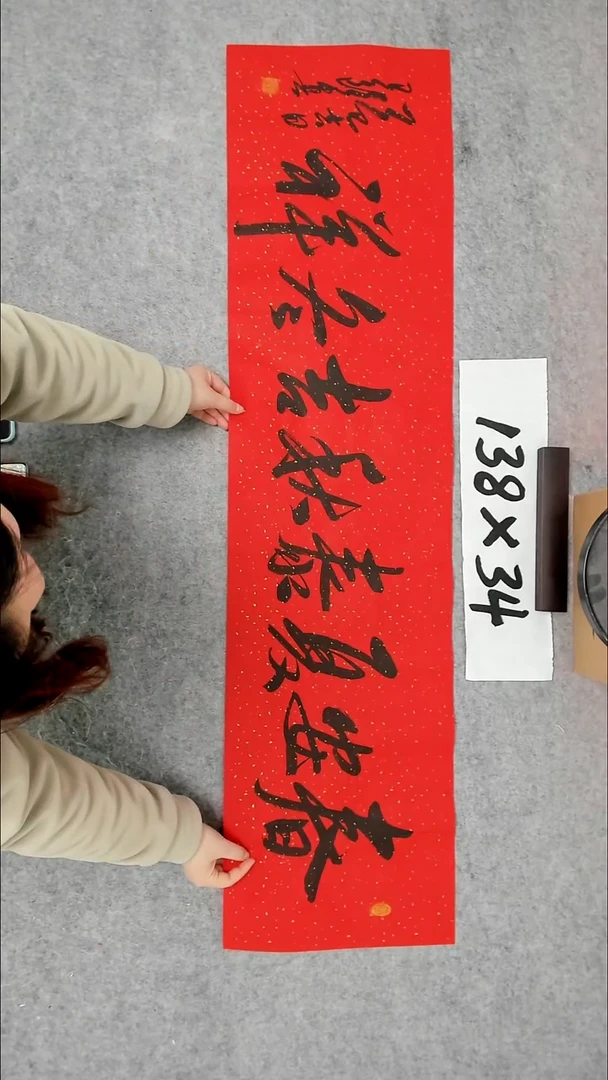 春安夏泰秋吉冬祥
138×34